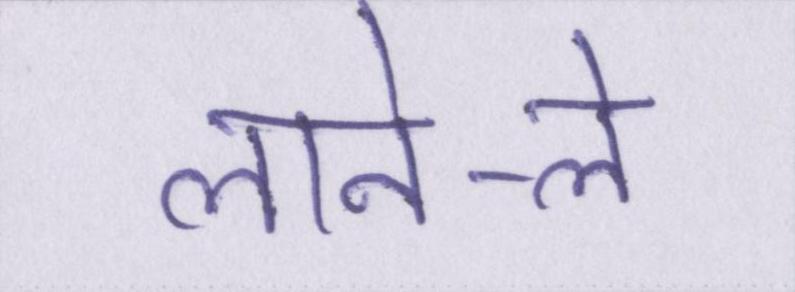 लाने-ले